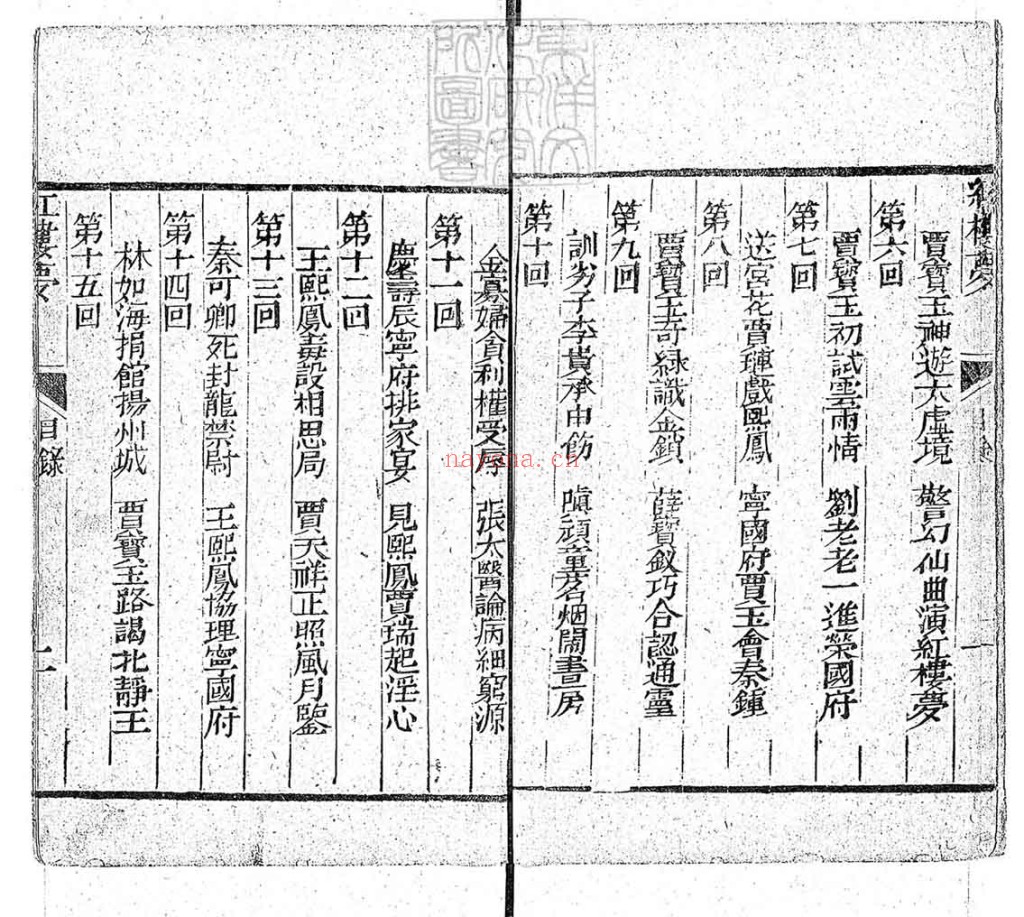 紅樓夢
賈寶玉神遊太虛境　警幻仙曲演紅樓夢
第六回
賈寶玉初試雲雨情　劉老老一進榮國府
第七回
送宮花賈璉戲熙鳳　寧國府寶玉會秦鍾
第八回
賈寶玉奇緣識金鎖　薛寶釵巧合認通靈
第九回
訓劣子李貴承申飭　嗔頑童茗烟鬧書房
第十回
金寡婦貪利權受辱　張太醫論病細窮源
第十一回
慶壽辰寧府排家宴　見熙鳳賈瑞起淫心
第十二回
王熙鳳毒設相思局　賈天祥正照風月鑒
第十三回
秦可卿死封龍禁尉　王熙鳳協理寧國府
第十四回
林如海捐館揚州城　賈寶玉路謁北靜王
第十五回
紅樓夢
目錄
二
東洋文化研究所圖書
nayona.cn